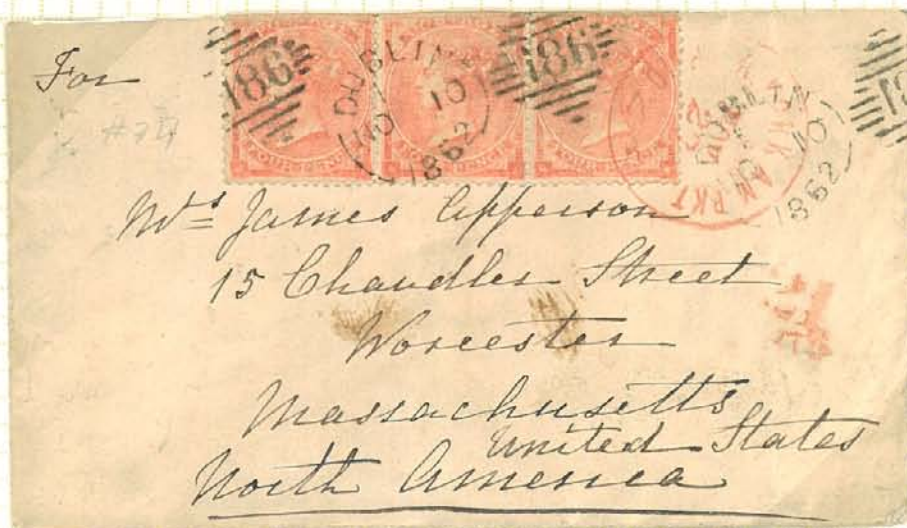 For
186
DUBLIN
10
1862
186
DUBLIN
10
1862
FOURPENCE
PKT
Mrs James Apperson
15 Chandler Street
Worcester
Massachusetts
United States
North America